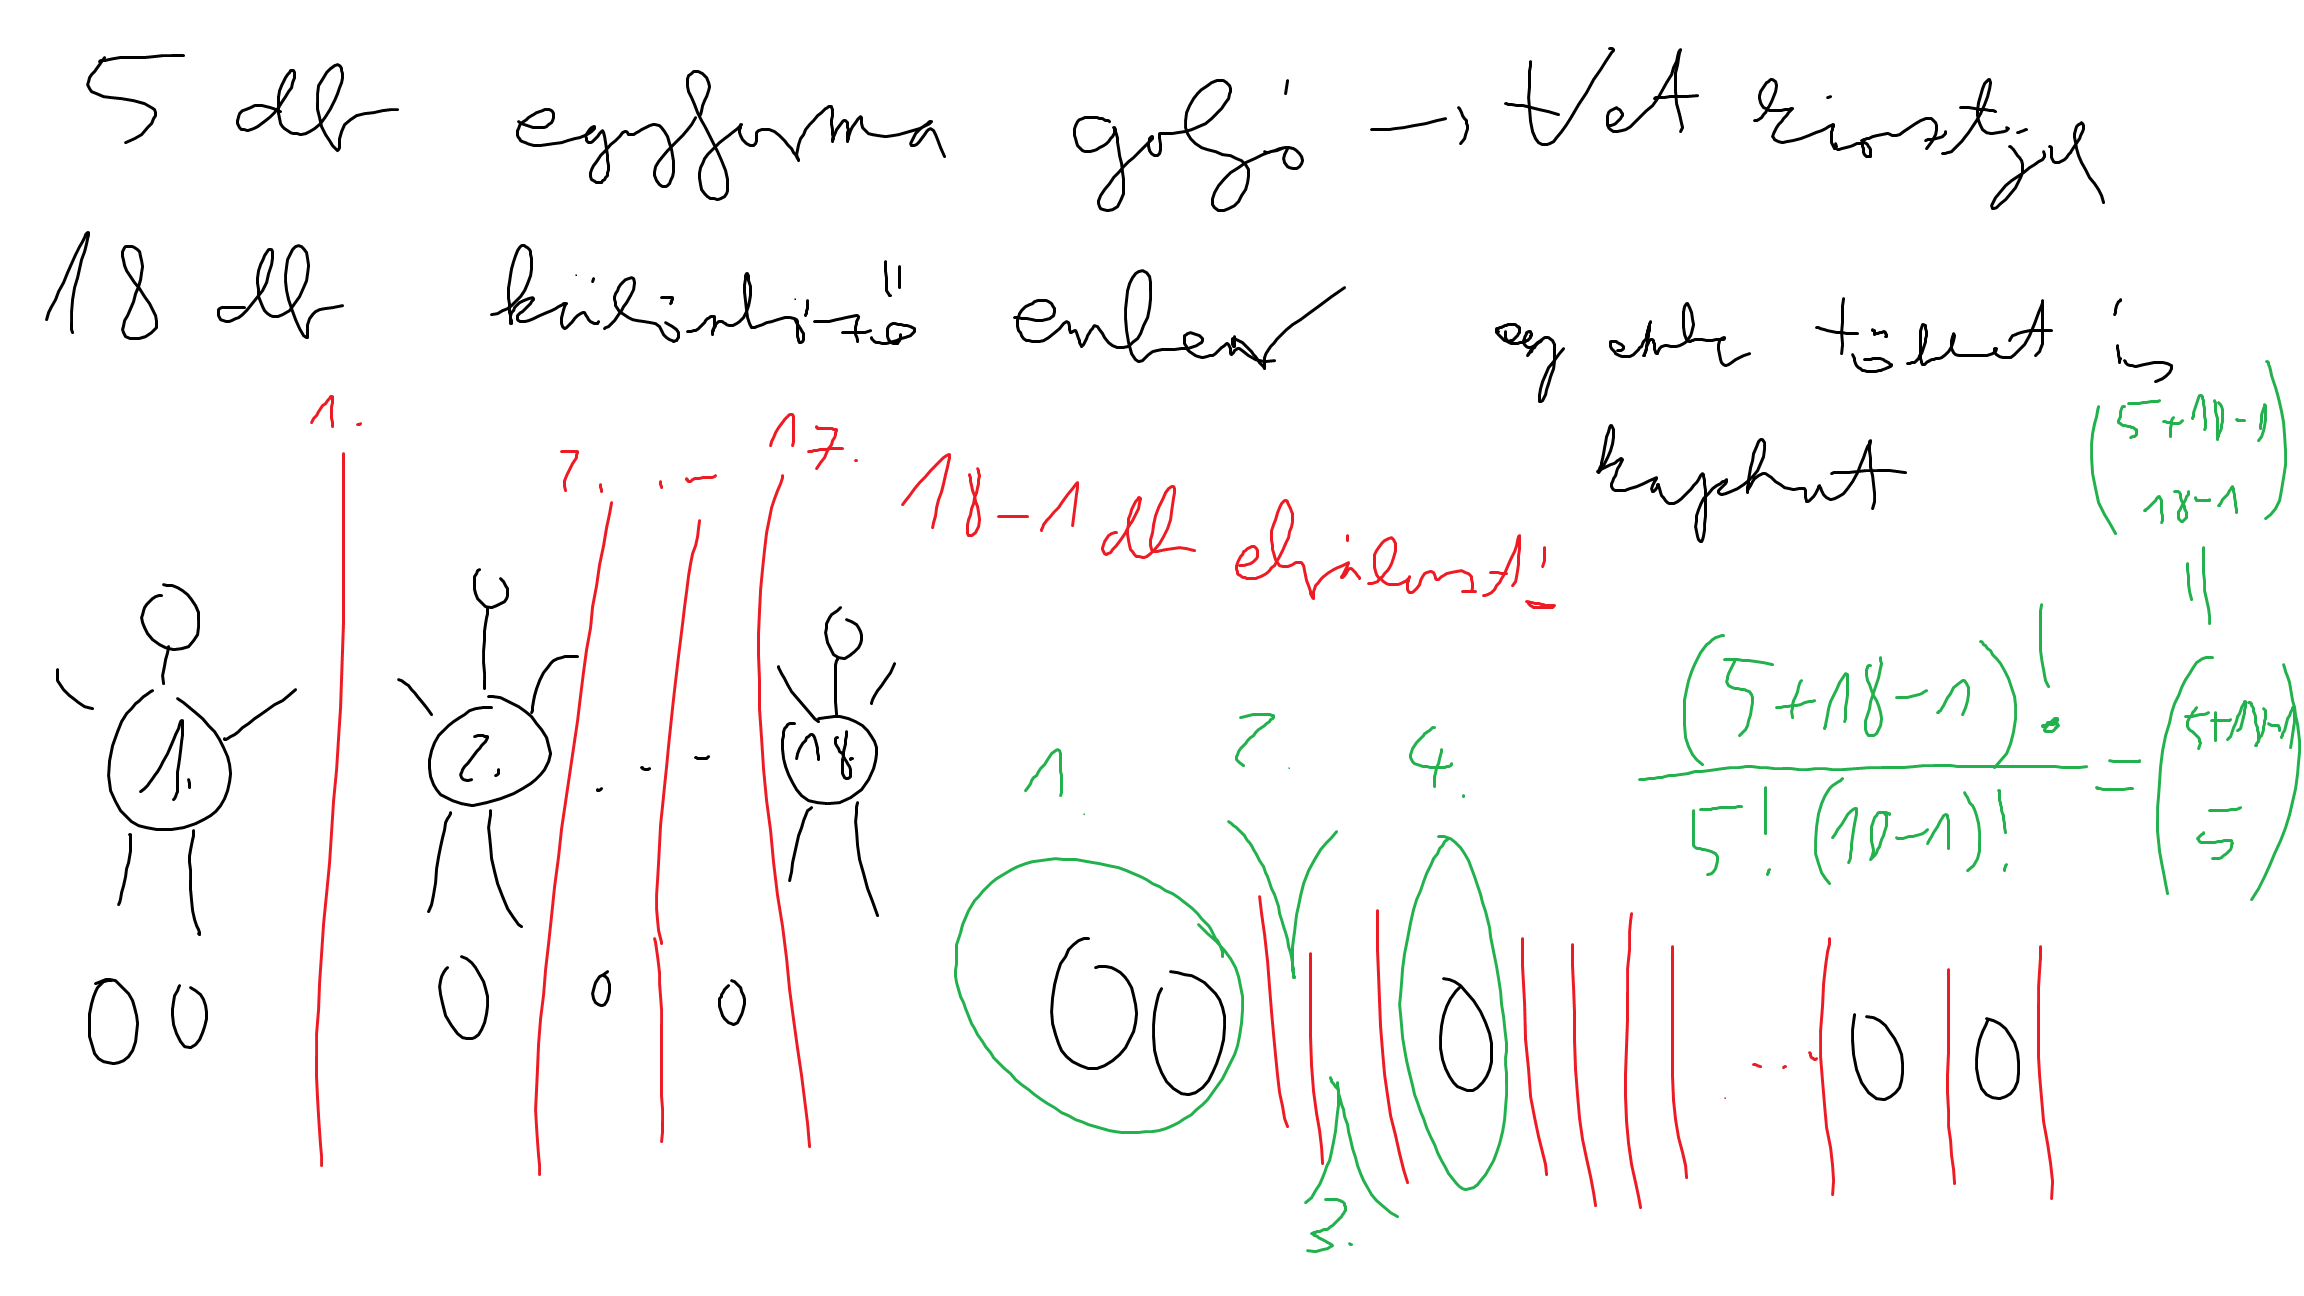 5 db egyforma golyó → szét osztjuk
18 db különböző ember egy ember többet is
kaphat
1. 2. ... 17. 18-1 db elválasztó
(5+18-1
18-1)
=
1. 2. ... 18.
1. 2. 4. (5+18-1)! / 5! (18-1)! = (5+18-1
5)
...
3.